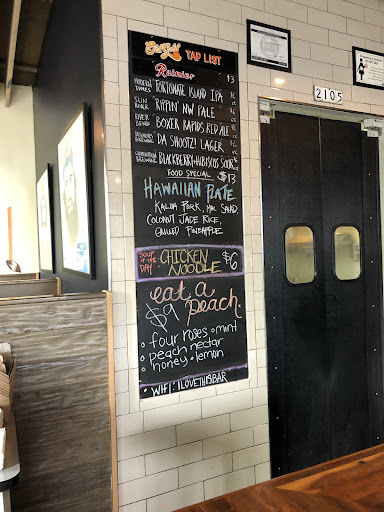 TAP LIST
Rainier $3
FORTUNATE ISLAND IPA
SUN RIVER RIPPIN' NW PALE
RIVER BEND BOXER RAPIDS RED ALE
DA SHOOTZ! LAGER
BLACKBERRY-HIBISCUS SOUR
FOOD SPECIAL $13
HAWAIIAN PLATE
KALUA PORK, MAC SALAD,
COCONUT JADE RICE,
GRILLED PINEAPPLE
SOUP OF THE DAY CHICKEN NOODLE $6
eat a peach
$9
• four roses • mint
• peach nectar
• honey • lemon
• WIFI: ILOVETHISBAR
2105